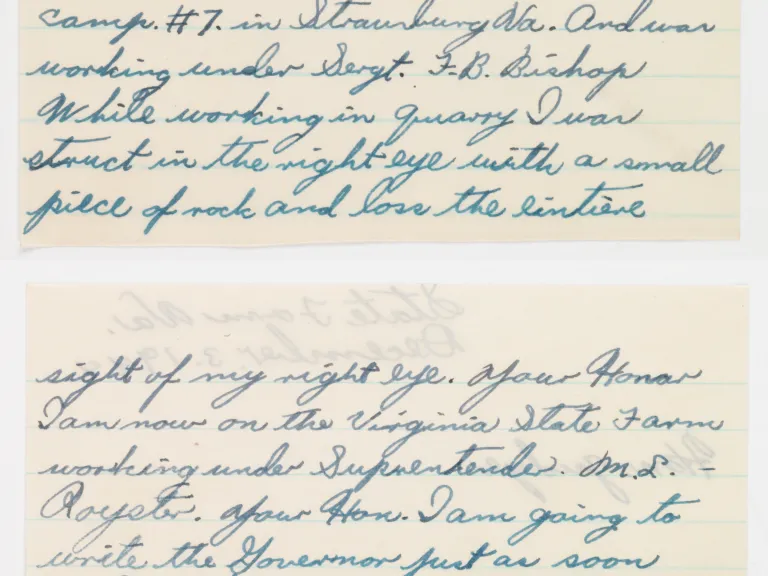 camp. #7. in Strausburg Va. And was
working under Sergt. F.B. Bishop
While working in quarry I was
struct in the right eye with a small
piece of rock and loss the eintiere
State Farm Va.
December 3, 19
sight of my right eye. Your Honor
I am now on the Virginia State Farm
working under Suprentender. M.L. -
Royster. Your Hon. I am going to
write the Governor just as soon